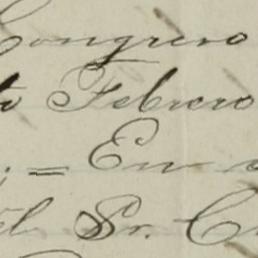 Congreso
Febrero
= En
el Sr.